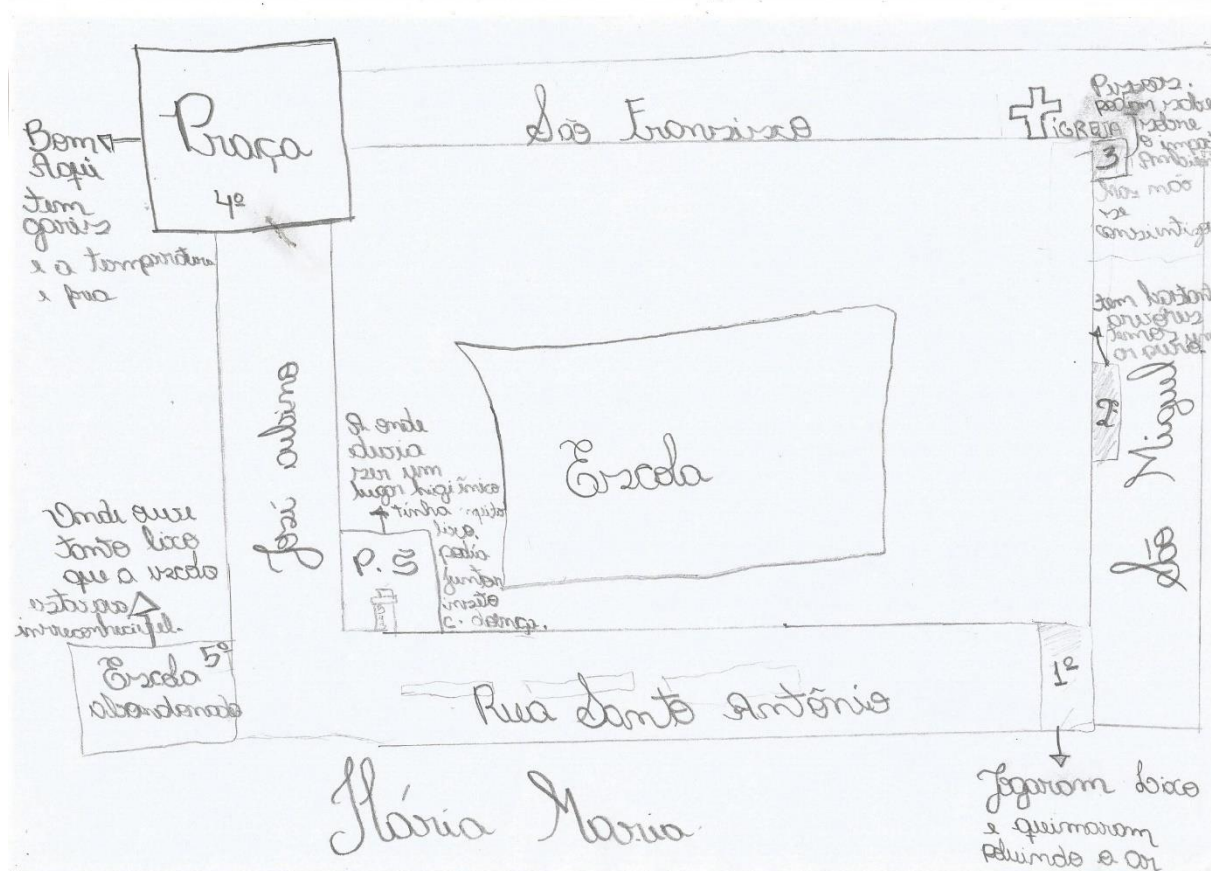 Praça
4º
Bom
Aqui
tem
garis
e a temperatura
e fria
São Francisco
IGREJA
3
Pessoas
podem saber
sobre
o impa
Ambien
mas não
se
tem bastante
arvores
ar puro.
2º
São Miguel
José aduino
A onde
devia
ser um
lugar higiênico
tinha muito
lixo.
podia
juntar
inseto
e. doença.
P. S
Escola
Onde ouve
tanto lixo
que a escola
esta
Escola
abandonada
5º
Rua Santo Antônio
1º
Jogaram Lixo
e queimaram
poluindo o ar
Flávia Maria